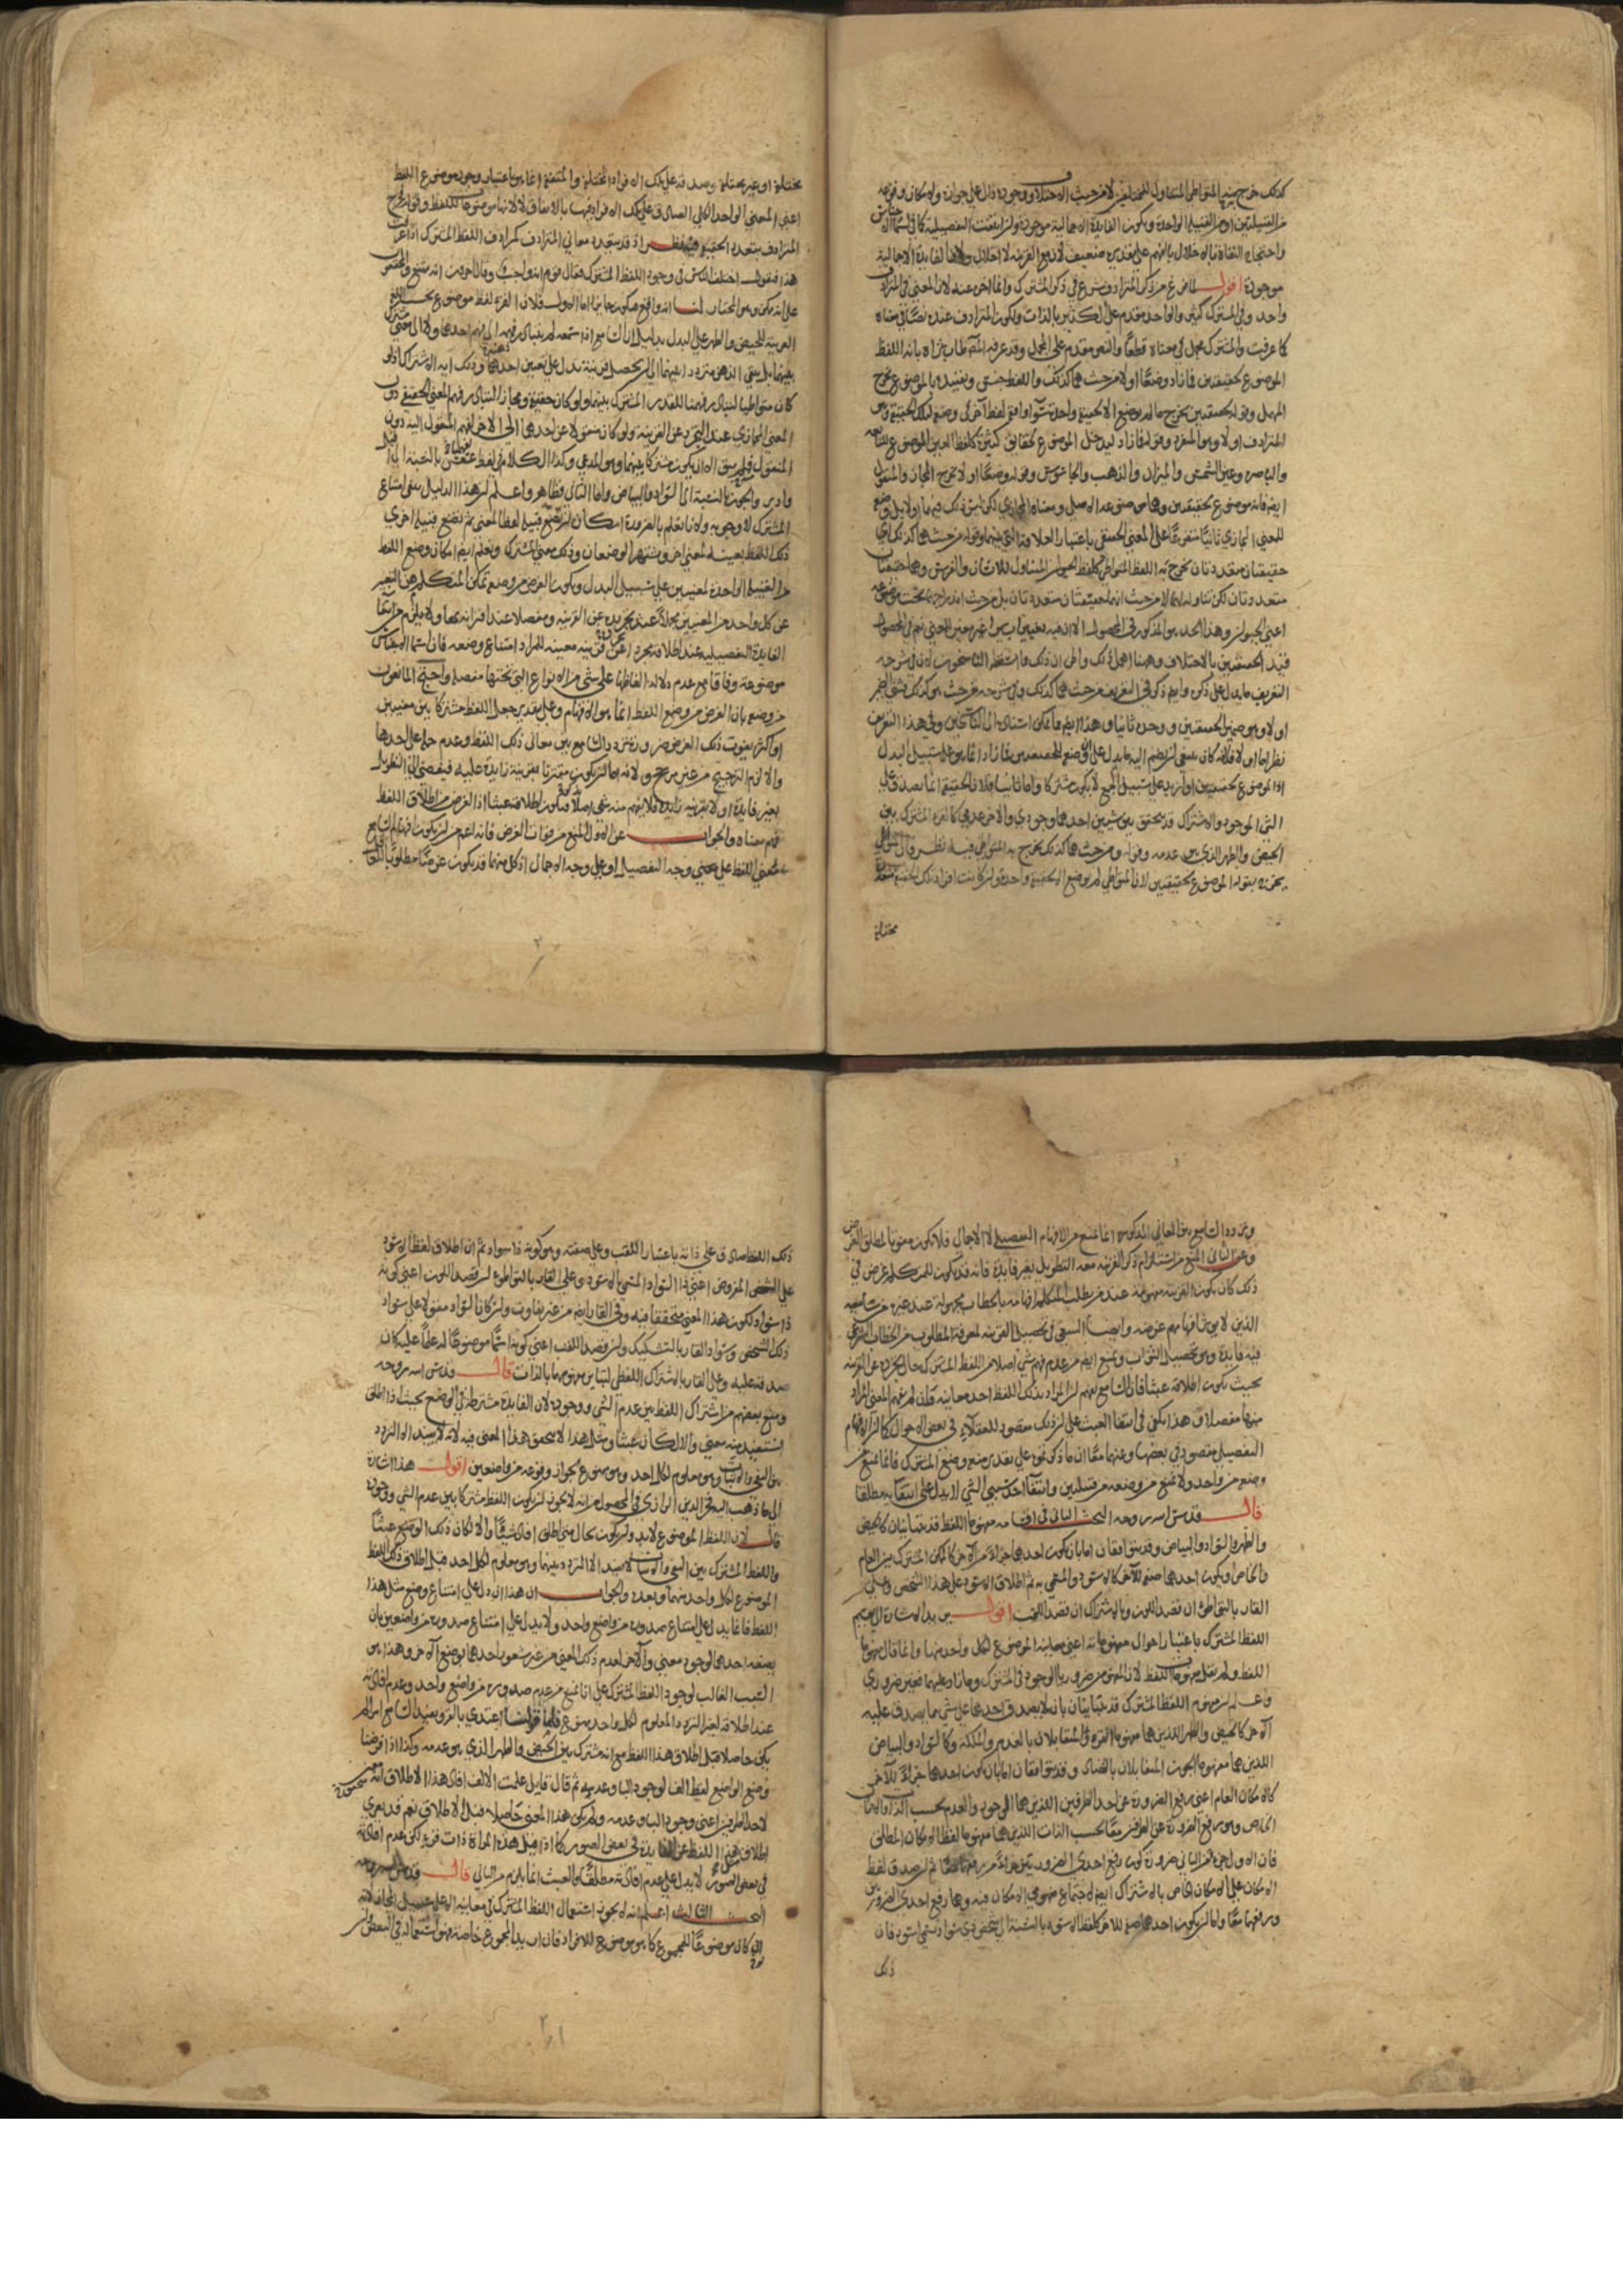 كذلك خرج منه المتواطي المتناول للمختلفين لا من حيث الاختلاف ووجوده دال على جوازه وامكان وقوعه
من القبيلتين او من القبيلة الواحدة ويكون الفايدة الاجمالية موجودة وان انتفت التفصيلية كما في اسما الاجناس
واحتجاج النفاة بالاخلال بالفهم على تقديره ضعيف لان مع القرينة لا اخلال ولانها الفايدة الاجمالية
موجودة اقول لما فرغ من ذكر المترادف شرع في ذكر المشترك وانما اخره عنه لان المعنى في المترادف
واحد وفي المشترك كثير والواحد مقدم على الكثير بالذات ولكون المترادف عنده نصا في معناه
كما عرفت والمشترك مجمل في معناه قطعا والنص مقدم على المجمل وقد عرفه المصنف طاب ثراه بانه اللفظ
الموضوع لحقيقتين فما زاد وضعا اولا من حيث هما كذلك واللفظ جنس وتقييده بالموضوع يخرج
المهمل وقوله لحقيقتين يخرج ما لم يوضع الا لحقيقة واحدة سوآ وافق لفظ آخر في وضعه لتلك الحقيقة وهو
المترادف او لا وهو المنفرد وقوله فما زاد ليدخل الموضوع لحقايق كثيرة كلفظ العين الموضوع للنابعة
والباصره وعين الشمس والميزان والذهب والجاسوس وقوله وضعا اولا يخرج المجاز والمنقول
ايضا فانه موضوع لحقيقتين وهما موضوعه الاصلي ومعناه المجازي لكن ليس ذلك فيهما اولا بل وضع
للمعنى المجازي ثانيا متفرعا على المعنى الحقيقي باعتبار العلاقة التي بينهما وقوله من حيث هما كذلك اي
حقيقتان متعددتان يخرج به اللفظ المتواطي كلفظ الحيوان المتناول للانسان والفرس وهما حقيقتان
متعددتان لكن تناوله لهما لا من حيث انهما حقيقتان متعددتان بل من حيث اندراجهما تحت موضوعه
اعني الحيوان وهذا الحد هو المذكور في المحصول الا ان فيه
قيد الحقيقتين بالاختلاف وهنا اهمل ذلك
التعريف ما يدل على ذكره وايضا ذكر في التعريف من حيث هما كذلك
اولا وهو ضمير الحقيقتين ووحده ثانيا وهذا ايضا مما يمكن استناده الى الناسخين وفي هذا التعريف
نظر اما اولا فلانه كان ينبغي ان يضم اليه ما يدل على ان وضعه للحقيقتين فما زاد انما هو على سبيل البدل
اذ الموضوع لحقيقتين او ازيد على سبيل الجمع لا يكون مشتركا واما ثانيا فلان الحقيقة انما تصدق على
الشي الموجود والاشتراك قد يتحقق بين شيئين احدهما وجودي والاخر عدمي كالقرء المشترك بين
الحيض والطهر الذي هو عدمه وقوله من حيث هما كذلك يخرج به المتواطي فيه نظر
بقوله الموضوع لحقيقتين لان المتواطي لم يوضع الا لحقيقة واحدة وان كانت افراد تلك الحقيقة متعددة
مختلفة
مختلفة او غير مختلفة وصدقه على تلك الافراد المختلفة والمتفقة انما هو باعتبار وجود موضوع اللفظ
اعني المعنى الواحد الكلي الصادق على تلك الافراد
المترادف بتعدد الحقيقة اذ قد يتعدد معاني المترادف كمرادف اللفظ المشترك اذا عرفت
هذا فنقول اختلف الناس في وجود اللفظ المشترك فقال قوم انه واجب وقال آخرون انه ممتنع والمحققون
على انه ممكن وهو المختار لنا انه واقع فيكون جايزا اما الاول فلان القرء لفظ موضوع بحسب اللغة
العربية للحيض والطهر على البدل بدليل ان السامع اذا سمعه لم يتبادر فهمه الى فهم احدهما ولا الى معنى مشترك
بينهما بل يبقى الذهن مترددا بينهما الى ان يحصل قرينة تدل على تعيين احدهما وذلك اية الاشتراك اذ لو
كان متواطيا لتبادر فهمنا للقدر المشترك بينهما ولو كان حقيقة ومجازا لتبادر فهم المعنى الحقيقي دون
المعنى المجازي عند التجرد عن القرينة ولو كان منقولا عن احدهما الى الاخر لفهم المنقول اليه دون
المنقول فلم يبق الا ان يكون مشتركا بينهما وهو المدعى وكذا الكلام في لفظ عسعس بالنسبة الى اقبل
وادبر والجون بالنسبة الى السواد والبياض واما الثاني فظاهر واعلم ان هذا الدليل ينفي امتناع
المشترك لا وجوبه ولانا نعلم بالضرورة امكان ان تضع قبيلة لفظا لمعنى ثم تضع قبيلة اخرى
ذلك اللفظ بعينه لمعنى اخر ويشتهر الوضعان وذلك معنى المشترك ونعلم ايضا امكان وضع اللفظ
من القبيلة الواحدة لمعنيين على سبيل البدل ويكون الغرض من وضعه تمكن المتكلم من التعبير
عن كل واحد من المعنيين مجملا عند تجريده عن القرينه ومفصلا عند اقترانه بها ولا يلزم من انتفا
الفايدة التفصيلية عند اطلاقه مجردا عن قرينه معينه للمراد امتناع وضعه فان اسما الاجناس
موضوعة وفاقا مع عدم دلالة الفاظها على شي من الانواع التي تحتها مفصلة واحتج المانعون
من وضعه بان الغرض من وضع اللفظ انما هو الافهام وعلى تقدير جعل اللفظ مشتركا بين معنيين
او اكثر يفوت ذلك الغرض ضرورة تردد السامع بين معاني ذلك اللفظ وعدم حمله على احدها
والا لزم الترجيح من غير مرجح ولانه اما ان يكون مقترنا بقرينة زايدة عليه فيفضي الى التطويل
بغير فايدة او لا بقرينه زايدة فلا يفهم منه شي اصلا فيكون اطلاقه عبثا اذ الغرض من اطلاق اللفظ
فهم معناه والجواب عن الاول المنع من فوات الغرض فانه اعم من ان يكون افهام السامع
معنى اللفظ على وجه التفصيل او على وجه الاجمال اذ كل منهما قد يكون غرضا مطلوبا للعقلا
وتردد السامع بين المعاني المذكوره انما يمنع من الافهام التفصيلي لا الاجمالي فلا يكون مفوتا لمطلق الغرض
وعن الثاني المنع من استلزام ذكر القرينه معه التطويل بغير فايدة فانه قد يكون للمتكلم غرض في
ذلك كأن يكون القرينه مفهومة عند من يطلب المتكلم افهامه بالخطاب مجهولة عند غيره من سامعيه
الذين لا يريد افهامهم غرضه وايضا السعي في تحصيل القرينه لمعرفة المطلوب من الخطاب الشرعي
فيه فايدة وهو تحصيل الثواب ونمنع ايضا من عدم فهم شي اصلا من اللفظ المشترك حال تجرده عن القرينه
بحيث يكون اطلاقه عبثا فان السامع يفهم ان المراد بذلك اللفظ احد معانيه وان لم يفهم المعنى المراد
منها مفصلا وهذا يكفي في انتفا العبث على ان ذلك مقصود للعقلاء في بعض الاحوال كما ان الافهام
التفصيلي مقصود في بعضها وعنهما معا ان ما ذكرتموه على تقدير منعه وضع المشترك فانما يمنع من
وضعه من واحد ولا يمنع من وضعه من قبيلتين وانتفآ احد سببي الشي لا يدل على انتفآيه مطلقا
قال قدس الله روحه البحث الثاني في اقسامه مفهوما اللفظ قد يتباينان كالحيض
والطهر والسواد والبياض وقد يتوافقان اما بان يكون احدهما جزءا من الآخر كالممكن المشترك بين العام
والخاص او يكون احدهما صفة للآخر كالاسود والمسمى به ثم اطلاق الاسود على هذا الشخص وعلى
القار بالتواطئ ان قصد اللون وبالاشتراك ان قصد اللقب اقول يريد الاشارة الى تقسيم
اللفظ المشترك باعتبار احوال مفهوماته اعني معانيه الموضوع لكل واحد منها وانما قال مفهوما
اللفظ ولم يقل مفهومات اللفظ لان المفهومين ضروريا الوجود في المشترك وما زاد عليهما فغير ضروري
واعلم ان مفهومي اللفظ المشترك قد يتباينان بان لا يصدق احدهما على شي مما يصدق عليه
الآخر كالحيض والطهر اللذين هما مفهوما القرء والمتقابلان بالعدم والملكة وكالسواد والبياض
اللذين هما مفهوما الجون المتقابلان بالتضاد وقد يتوافقان اما بان يكون احدهما جزءا للآخر
كالامكان العام اعني رفع الضرورة عن احد الطرفين اللذين هما الوجود والعدم بحسب الذات والامكان
الخاص وهو رفع الضرورة عن الطرفين معا بحسب الذات اللذين هما مفهوما لفظ الامكان المطلق
فان الاول جزء من الثاني ضرورة كون رفع احدى الضرورتين جزءا من رفعهما معا ثم ان صدق لفظ
الامكان على الامكان الخاص بالاشتراك ايضا لاجتماع مفهومي الامكان فيه وهما رفع احدى الضرورتين
ورفعهما معا واما ان يكون احدهما صفة للاخر كلفظ الاسود بالنسبة الى شخص ذي سواد سمي اسود فان
ذلك
ذلك اللفظ صادق على ذاته باعتبار اللقب وعلى صفته وهو كونه ذا سواد ثم ان اطلاق لفظ الاسود
على الشخص المفروض اعني ذا السواد المسمى بالاسود وعلى القار بالتواطؤ ان قصد اللون اعني كونه
ذا سواد لكون هذا المعنى متحققا فيه وفي القار ايضا من غير تفاوت وان كان السواد مقولا على سواد
ذلك الشخص وسواد القار بالتشكيك وان قصد اللقب اعني كونه اسما موضوعا له علما عليه كان
صدقه عليه وعلى القار بالاشتراك اللفظي لتباين مفهوميهما بالذات قال قدس الله روحه
ومنع بعضهم من اشتراك اللفظ بين عدم الشي ووجوده لان الفايدة مشترطة في الوضع بحيث اذا اطلق
استفيد منه معنى والا لكان عبثا ومثل هذا لا يتحقق هذا المعنى فيه لانه لا يفيد الا التردد
بين النفي والاثبات وهو معلوم لكل احد وهو ممنوع لجواز وقوعه من واضعين اقول هذا اشارة
الى ما ذهب اليه فخر الدين الرازي في المحصول من انه لا يجوز ان يكون اللفظ مشتركا بين عدم الشي ووجوده
قال لان اللفظ الموضوع لابد وان يكون بحال متى اطلق افاد شيئا والا لكان ذلك الوضع عبثا
واللفظ المشترك بين النفي والاثبات لا يفيد الا التردد بينهما وهو معلوم لكل احد قبل اطلاق ذلك اللفظ
الموضوع لكل واحد منهما وبعده والجواب ان هذا ان دل على امتناع وضع مثل هذا
اللفظ فانما يدل على امتناع صدوره من واضع واحد ولا يدل على امتناع صدوره من واضعين بان
يضعه احدهما لوجود معنى والآخر لعدم ذلك المعنى من غير شعور احدهما بوضع الآخر وهذا هو
السبب الغالب لوجود اللفظ المشترك على انا نمنع من عدم صدوره من واضع واحد وعدم افادته
عند اطلاقه لغير التردد المعلوم لكل واحد ممنوع
يكن حاصلا قبل اطلاق هذا اللفظ مع انه مشترك بين الحيض والطهر الذي هو عدمه وكذا اذا فرضنا
وضع الواضع لفظ الف لوجود الباء وعدمه ثم قال قايل علمت الالف افاد هذا الاطلاق
لاحد الطرفين اعني وجود الباء وعدمه ولم يكن هذا المعنى حاصلا قبل الاطلاق نعم قد يعرى
اطلاق هذا اللفظ عن الفايدة في بعض الصور كما اذا قيل هذه المراة ذات قرء لكن عدم افادته
في بعض الصور لا يدل على عدم افادته مطلقا والعبث انما يلزم من الثاني قال قدس الله روحه
البحث الثالث اعلم انه لا يجوز استعمال اللفظ المشترك في معانيه الا على سبيل المجاز لانه
ان كان موضوعا للمجموع كما هو موضوع للافراد فان اريد المجموع خاصة فهو استعمال له في البعض وان